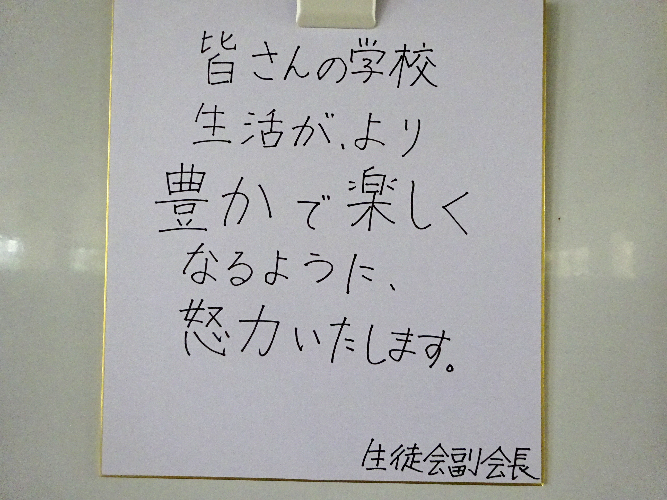 皆さんの学校
生活が、より
豊かで楽しく
なるように、
怒力いたします。
生徒会副会長